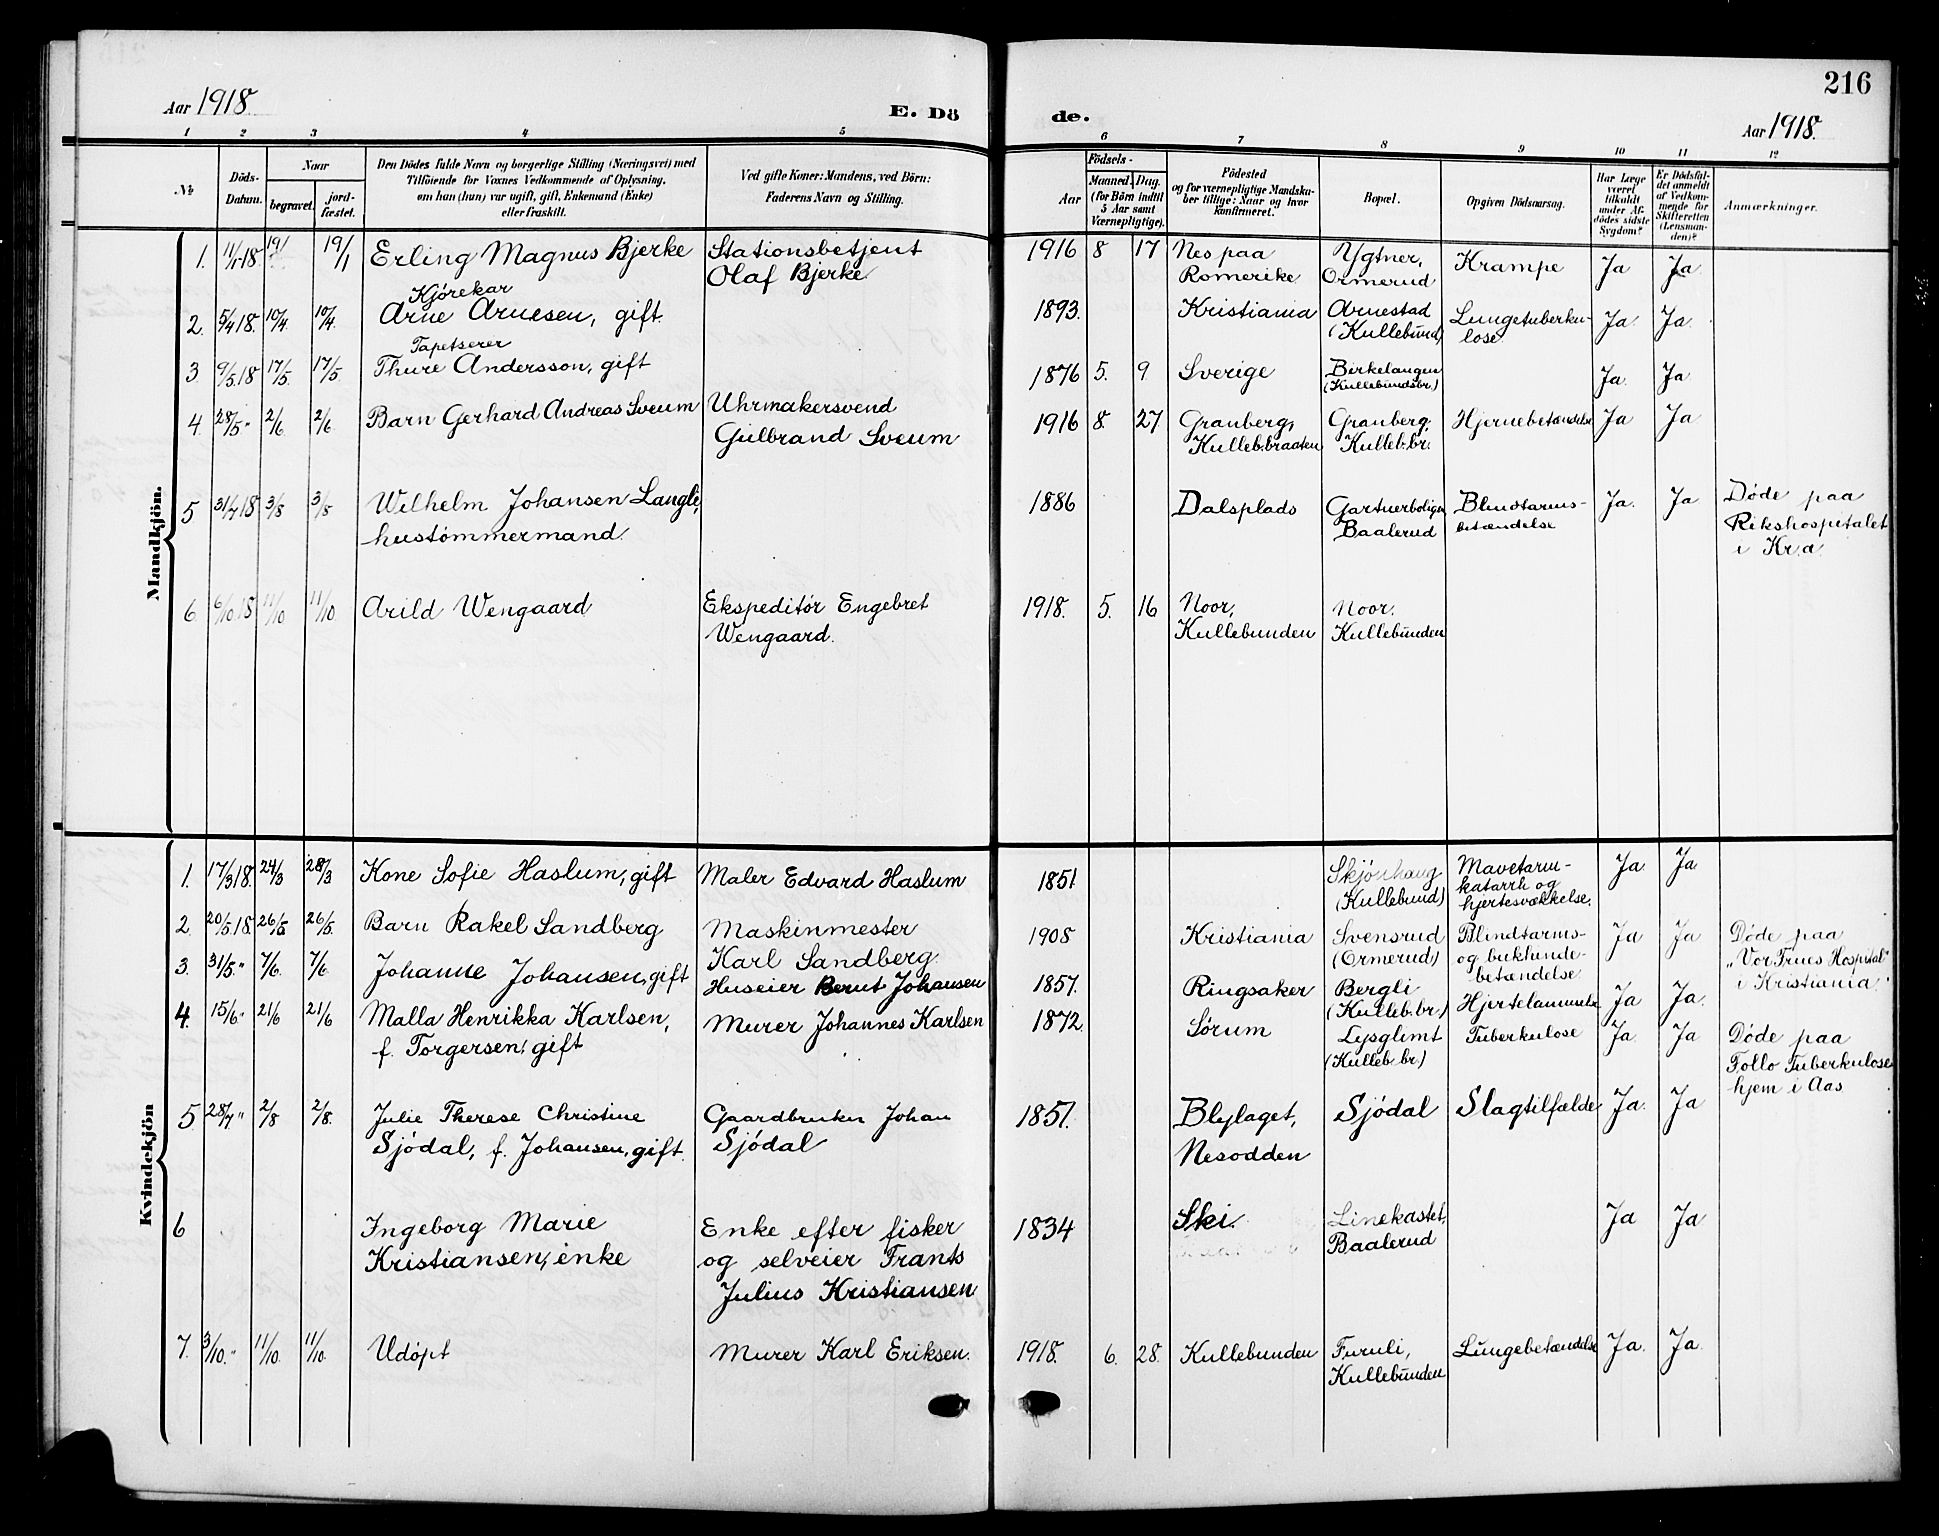 216
Aar 1918
E. Dö
de.
Aar 1918.
1 2 3 4 5 6 7 8 9 10 11 12
No
Döds-
Datum.
Naar
begravet. jord-
fæstet.
Den Dödes fulde Navn og borgerlige Stilling (Næringsvei) med
Tilföiende for Voxnes Vedkommende af Oplysning,
om han (hun) var ugift, gift, Enkemand (Enke)
eller fraskilt.
Ved gifte Koner: Mandens, ved Börn:
Faderens Navn og Stilling.
Födsels-
Aar
Maaned. Dag.
(for Börn indtil
5 Aar samt
Værnepligtige).
Födested
og for værnepligtige Mandska-
ber tillige: Naar og hvor
konfirmeret.
Bopæl.
Opgiven Dödsaarsag.
Har Læge
været
tilkaldt
under Af-
dödes sidste
Sygdom?
Er Dödsfal-
det anmeldt
af Vedkom-
mende for
Skifteretten
(Lensman-
den)?
Anmærkninger.
Mandkjön.
1. 11/1-18. 19/1 19/1 Erling Magnus Bjerke Stationsbetjent 1916 8 17 Nes paa Ygtner, Krampe Ja Ja
Olaf Bjerke Romerike Ormerud
Kjørekar
2. 5/4 18. 10/4. 10/4. Arne Arnesen, gift. 1893. Kristiania Arnestad Lungetuberku- Ja. Ja.
(Kullebund) lose.
Tapetserer
3. 9/5.18 17/5. 17/5. Thure Andersson, gift 1876 5. 9 Sverige Birkelangen Ja. Ja
(Kullebundsbr.)
4. 28/5 " 2/6. 2/6. Barn Gerhard Andreas Sveum Uhrmakersvend 1916 8. 27 Granberg, Granberg, Hjernebetændelse Ja Ja
Gulbrand Sveum Kulleb.braaten Kulleb.br.
5 31/7 18 3/8 3/8 Wilhelm Johansen Langli, 1886 Dalsplads Gartnerboligen Blindtarms- Ja. Ja Døde paa
hustømmermand. Baalerud betændelse Rikshospitalet
i Kr.a.
6. 6/10.18 11/10 11/10. Arild Wengaard Ekspeditør Engebret 1918. 5. 16 Noor, Noor.
Wengaard. Kullebunden Kullebunden
Kvindekjön
1. 17/3 18. 24/3 28/3 Kone Sofie Haslum, gift Maler Edvard Haslum 1851 Mavetarm- Ja Ja
(Kullebund) katarrh og
hjertesvækkelse.
2. 20/5.18. 26/5 26/5. Barn Rakel Sandberg Maskinmester 1908 Kristiania Svensrud Blindtarms- Ja Ja Døde paa
Karl Sandberg. (Ormerud) og bukhinde- „Vor Frues Hospital"
betændelse i Kristiania.
3. 31/5. " 7/6. 7/6. Johanne Johansen, gift Huseier Bernt Johansen 1857. Ringsaker Bergli Hjertelammelse Ja Ja.
(Kulleb.br.)
4. 15/6 " 21/6 21/6 Malla Henrikka Karlsen, Murer Johannes Karlsen 1872. Sørum Lysglimt Tuberkulose Ja. Ja Døde paa
f. Torgersen, gift (Kulleb.br.) Follo Tuberkulose
hjem i Aas
5. 28/7 " 2/8 2/8. Julie Therese Christine Gaardbruker Johan 1851. Blylaget, Sjödal Slagtilfælde Ja. Ja
Sjödal, f. Johansen, gift. Sjödal Nesodden
6 Ingeborg Marie Enke efter fisker 1834 Ski. Linekastet, Ja Ja
Kristiansen, enke og selveier Frants Baalerud
Julius Kristiansen
7. 3/10. " 11/10. 11/10. Udöpt Murer Karl Eriksen. 1918. 6. 28. Kullebunden Furuli, Lungebetændelse Ja. Ja.
Kullebunden